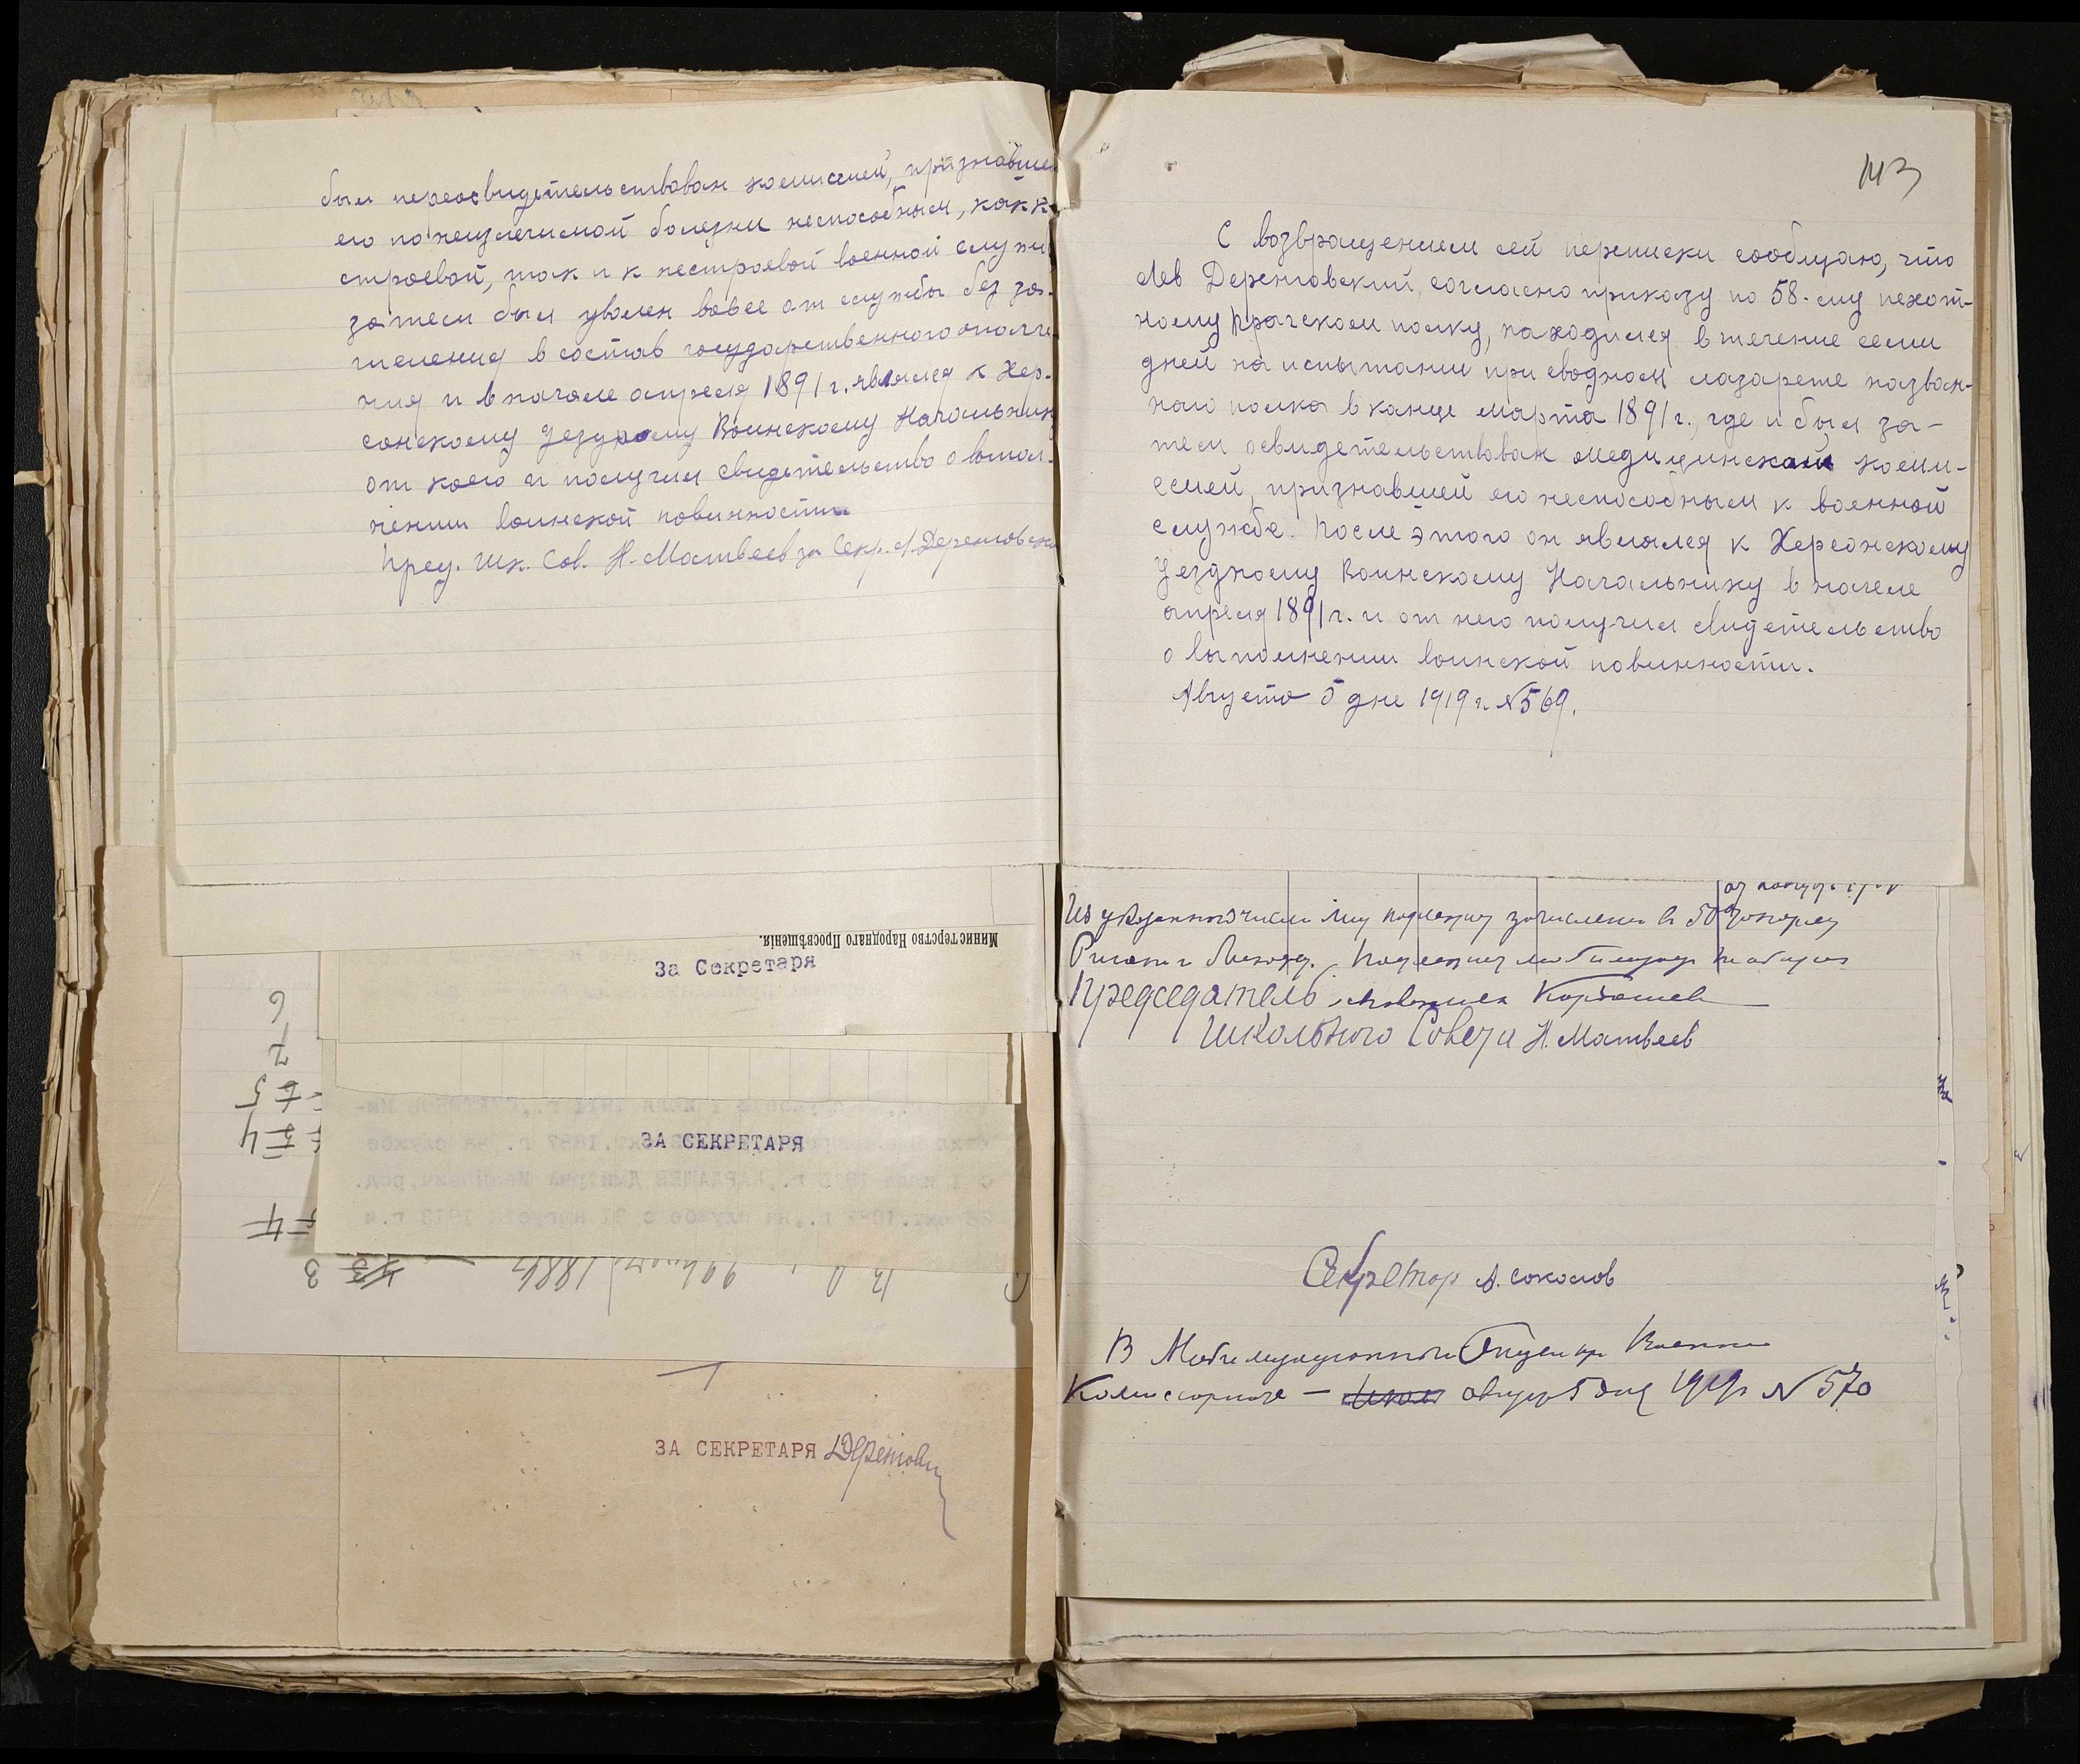 был переосвидетельствован комиссией, признавшей
его по неизлечимой болезни неспособным, как к
строевой, так и к нестроевой военной служ
затем был уволен вовсе от службы без за-
числения в состав государственного ополче
ния и в начале апреля 1891 г. являлся к Хер-
сонскому Уездному Воинскому Начальник
от коего и получил свидетельство о выпол-
нении воинской повинности.
Пред. Шк. Сов. Н. Матвеев за Секр. Л. Деренговски
Министерство Народнаго Просвѣщенія.
За Секретаря
ЗА СЕКРЕТАРЯ
ЗА СЕКРЕТАРЯ
113
С возвращением сей переписки сообщаю, что
Лев Деренговский, согласно приказу по 58-му пехот-
ному Прагскому полку, находился в течение семи
дней на испытании при сводном лазарете назван-
ного полка в конце марта 1891 г., где и был за-
тем освидетельствован медицинской комис-
ссией, признавшей его неспособным к военной
службе. После этого он являлся к Херсонскому
Уездному Воинскому Начальнику в начале
апреля 1891 г. и от него получил свидетельство
о выполнении воинской повинности.
Августа 5 дне 1919 г. №569.
Из указанного числа подлежит
Председатель
Школьного Совета Н. Матвеев
Секретар А. Соколов
В Мобилизационный Отдел при Военном
Комиссариате — август 5 дня 1919 г. № 570